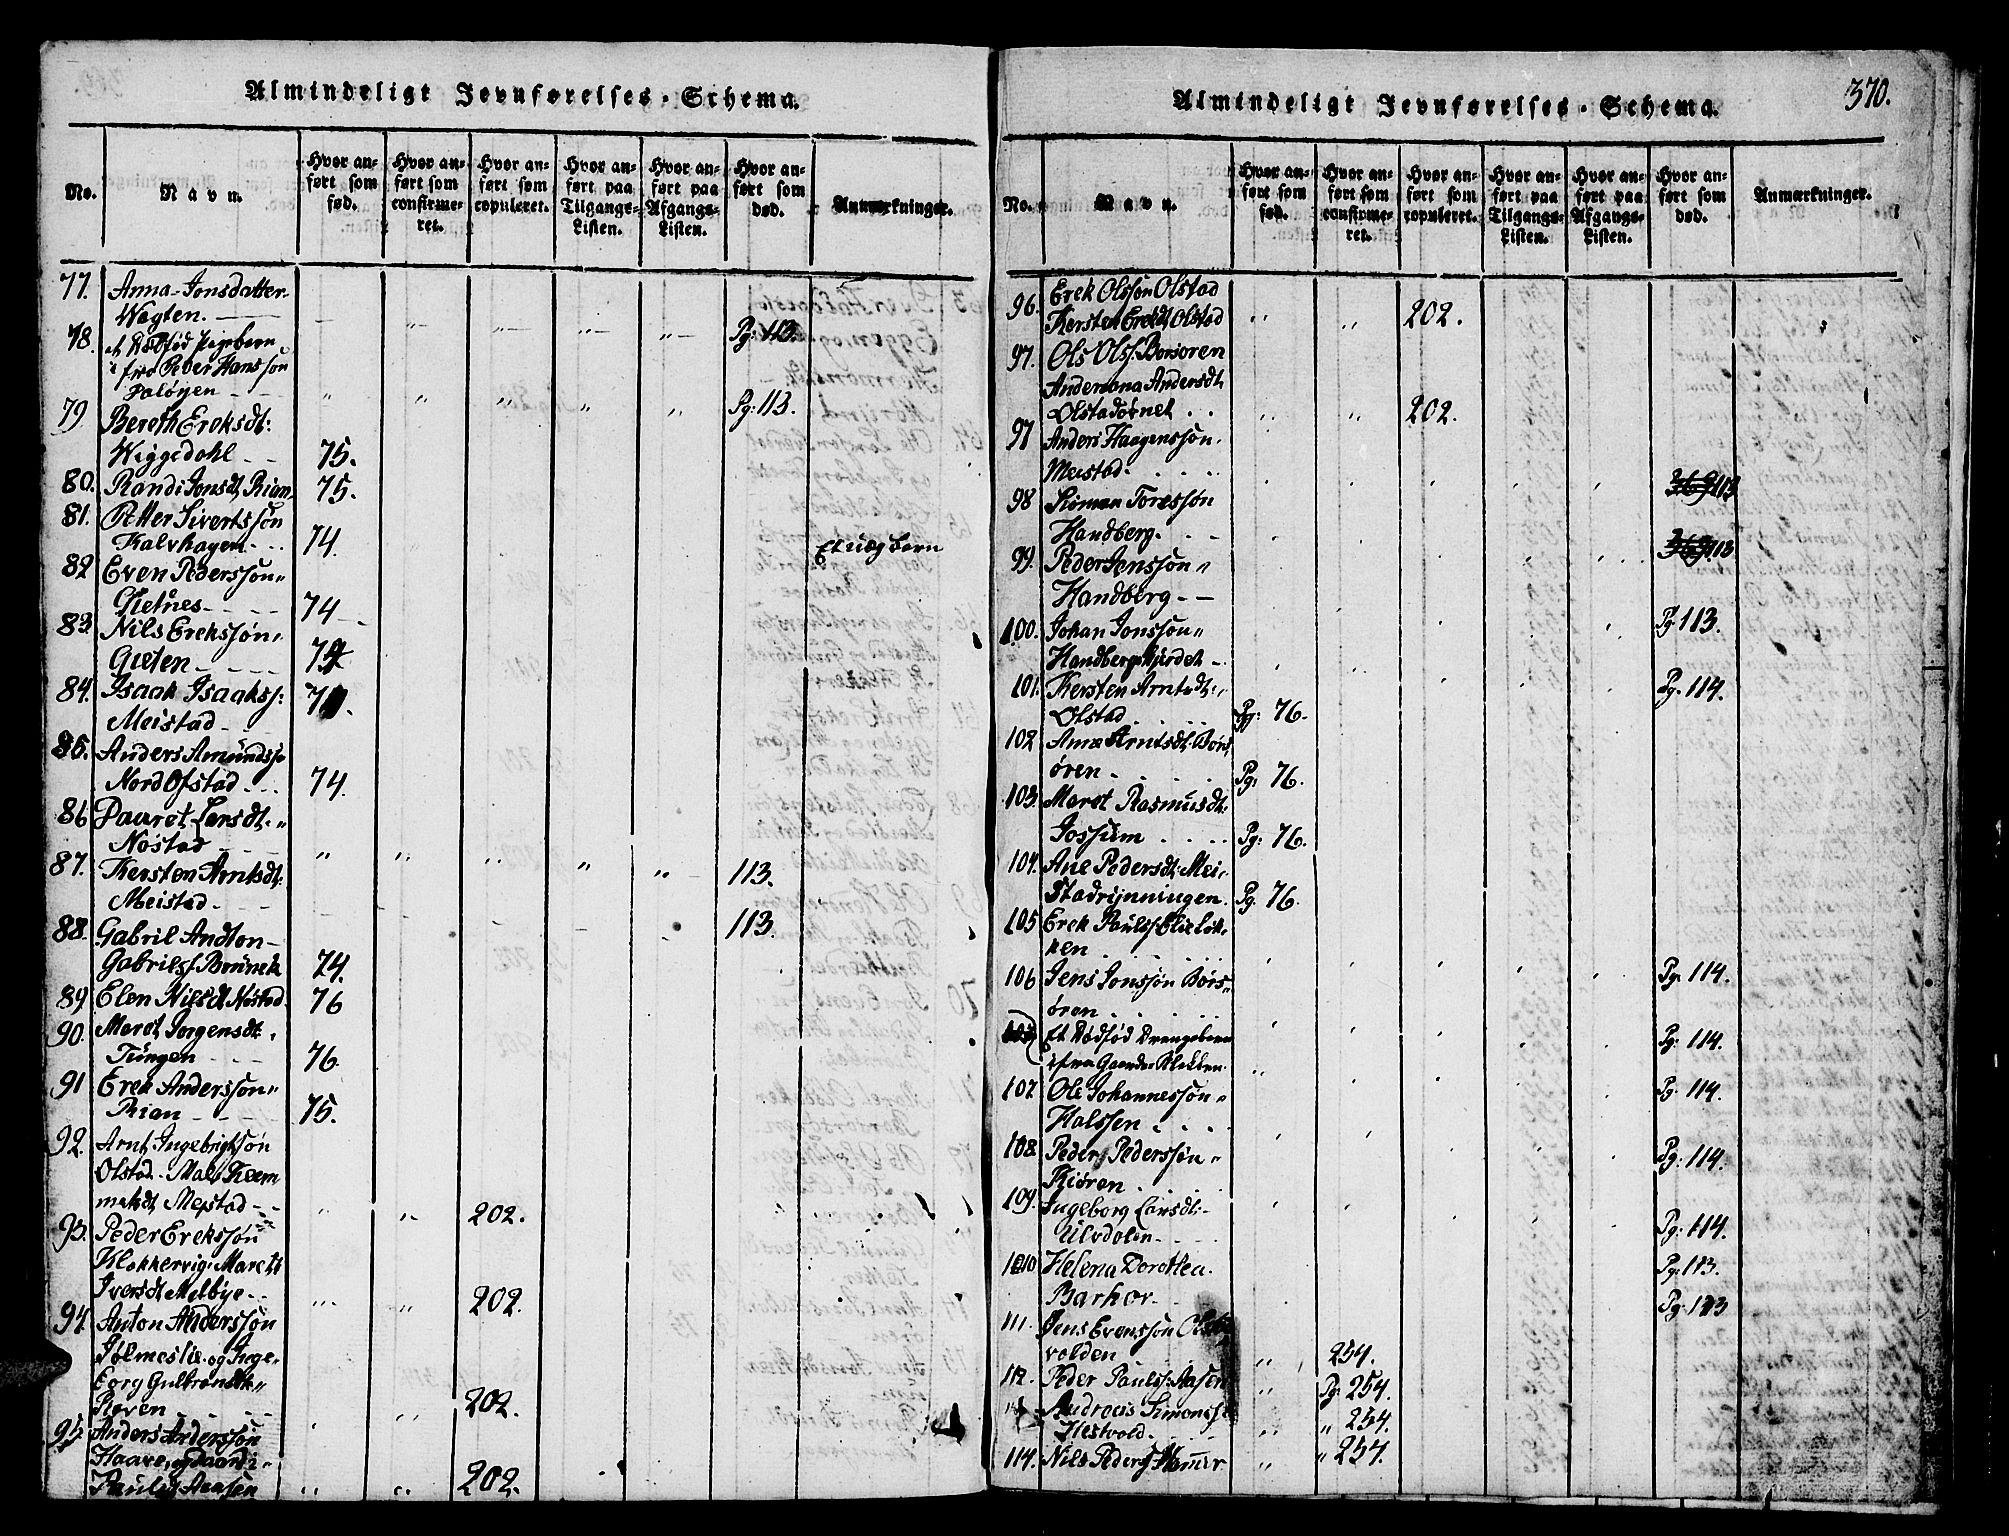 Almindeligt Jevnførelses-Schema.
No. Navn. Hvor anført som fød. Hvor anført som confirmeret. Hvor anført som copuleret. Hvor anført paa Tilgangs-Listen. Hvor anført paa Afgangs-Listen. Hvor anført som død. Anmærkninger.
77. Anna Jonsdatter
Wagten. Pg: 113.
78. et Dødfød Pigebarn
fra Peder Hanssøn
Paløyen Pg: 113.
79. Bereth Ereksdt:
Wiggedahl 75.
80. Randi Jonsdt, Rian 75.
81. Petter Sivertssøn
Kalvhagen 74. Et uæg barn
82 Even Pederssøn
Gietnes 74
83. Nils Erekssøn
Gieten 74
84. Isaak Isaakss:
Meistad 71.
85. Anders Amundss
Nord Ofstad 74.
86 Paaret Larsdt.
Nostad 113.
87. Kersten Arntsdt:
Meistad 113.
88. Gabril Andton
Gabrilss. 74.
89 Elen Nilsdt Nostad. 76
90. Maret Jorgensdt
Tungen 76.
91 Erek Anderssøn
Rian 75.
92. Arnt Ingebrigtsøn
Olstad
Meistad 202.
93. Peder Erekssøn
Klokkervig Maret
Iversdt Melbye 202.
94. Anton Anderssøn
Jølmeslie og Inge-
borg Gulbrandsdt
Røven 202.
95 Anders Anderssøn
Haare, og
Paulsd Aasen 202.
Almindeligt Jevnførelses-Schema. 370.
No. Navn. Hvor anført som fød. Hvor anført som confirmeret. Hvor anført som copuleret. Hvor anført paa Tilgangs-Listen. Hvor anført paa Afgangs-Listen. Hvor anført som død. Anmærkninger.
96. Erek Olssøn Olstad
Kersten Erekdt Olstad 202.
97. Ols Olss. Borsoren
Anderiana Andersdt,
Olstadørnet 202.
97 Anders Haagenssøn
Meistad. 369 113
98 Simon Toressøn
Handberg. 369 113
99. Peder Jenssøn
Handberg Pg. 113.
100. Johan Jonssøn
Handbergshjerdet Pg. 114.
101. Kersten Arntsdt:
Olstad Pg: 76.
102 Ane Arntsdt. Børs
øren Pg: 76.
103. Maret Rasmusdt.
Jossum Pg: 76.
104. Ane Pedersdt: Mei-
stadrynningen. Pg. 76.
105 Erek Paulss. Elieløk-
ken Pg: 114.
106 Jens Jonssøn Børs
øren Pg: 114.
107 Et Dødfød Drengebarn
ifra Gaarden Klukken Pg: 114.
107 Ole Johannessøn
Halssen Pg: 114.
108 Peder Pederssøn
Kiøren Pg: 114.
109. Ingeborg Larsdt
Ulvdalen Pg: 113.
110 Helena Dorothea
Barhov Pg: 113
111. Jens Evenssøn
volden 254.
112. Peder Paulss: Aasen Pg: 254.
Andreas Simonss
Hestvold " 254.
114. Nils Peders Hamer " 254.